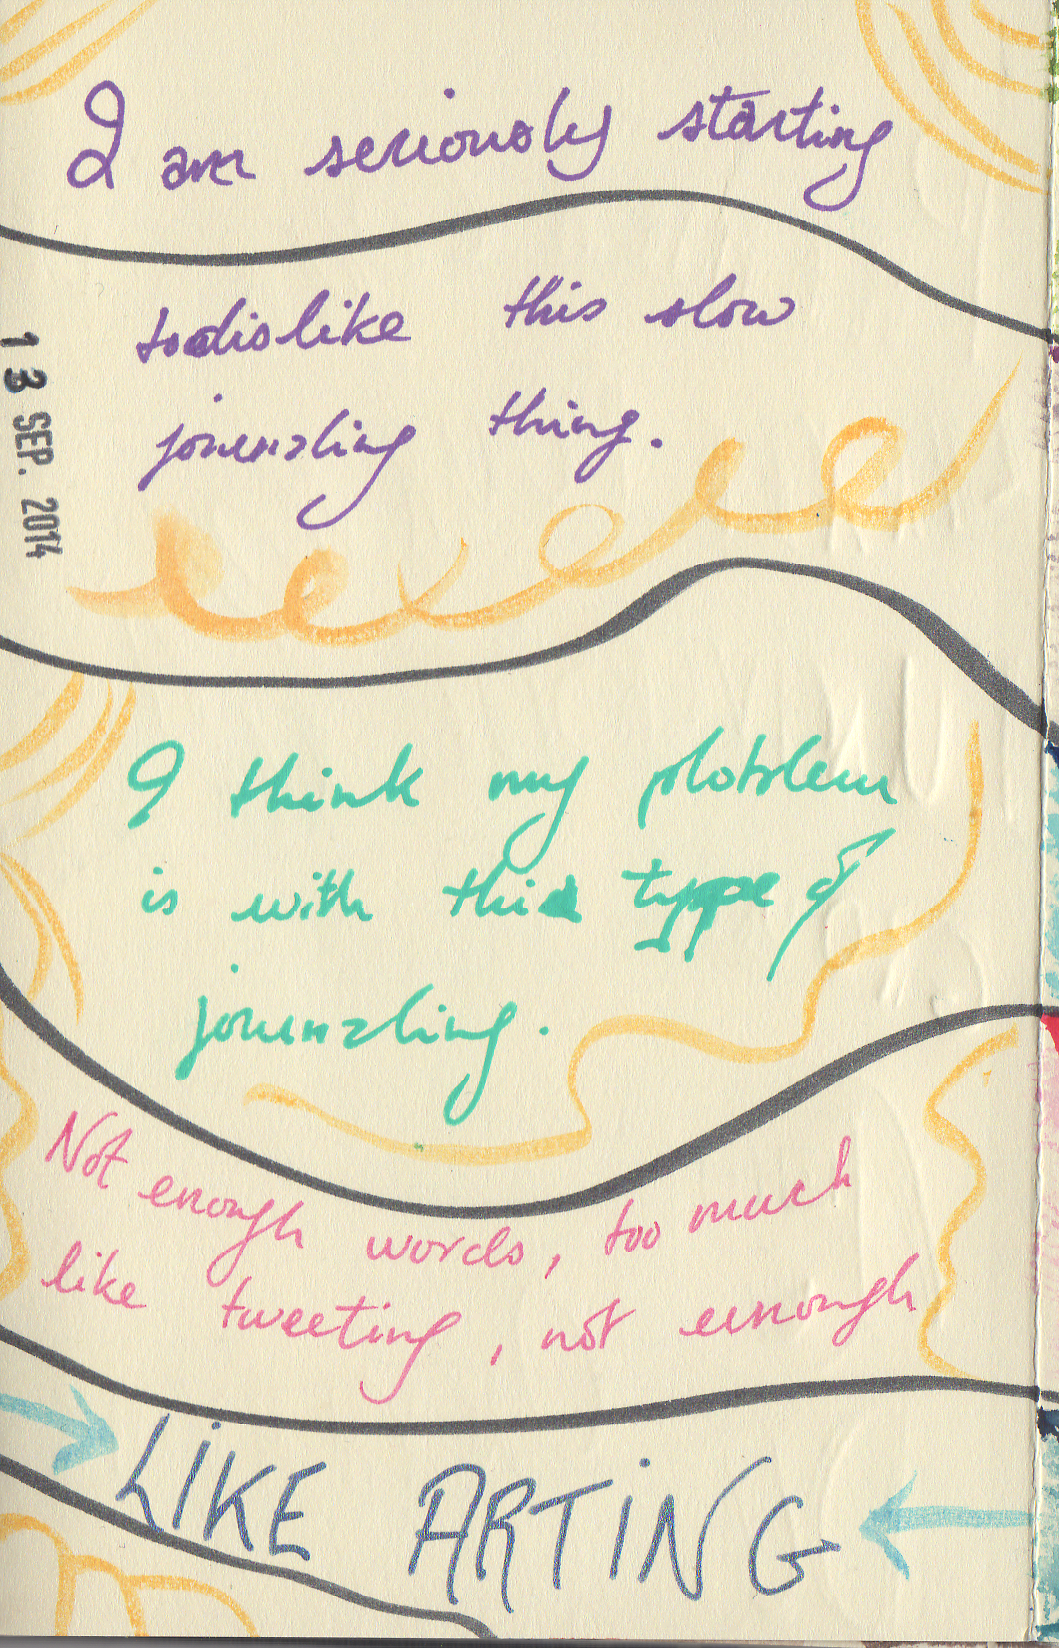 I am seriously starting
to dislike this slow
journaling thing.
13 SEP. 2014
I think my problem
is with this type of
journaling.
Not enough words, too much
like tweeting, not enough
LIKE ARTING